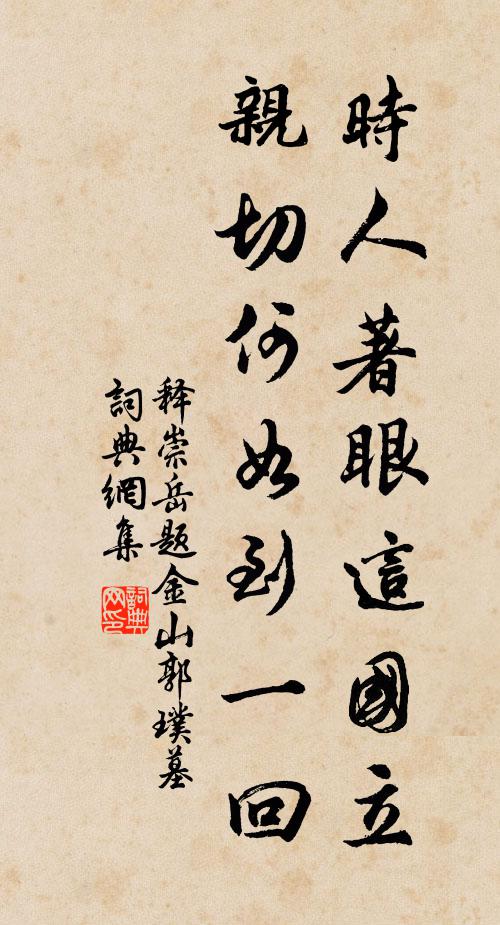 時人著眼這國立
親切何如到一回
释崇岳题金山郭璞墓
詞典網集
詞典
网印